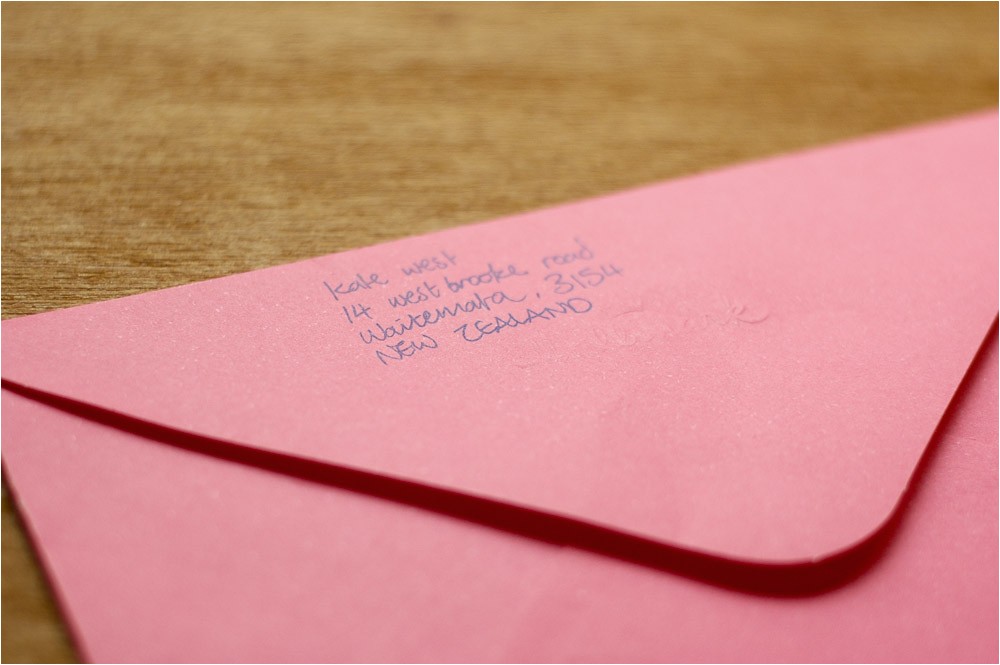 Kate west
14 westbrooke road
Waitemata, 3154
NEW ZEALAND